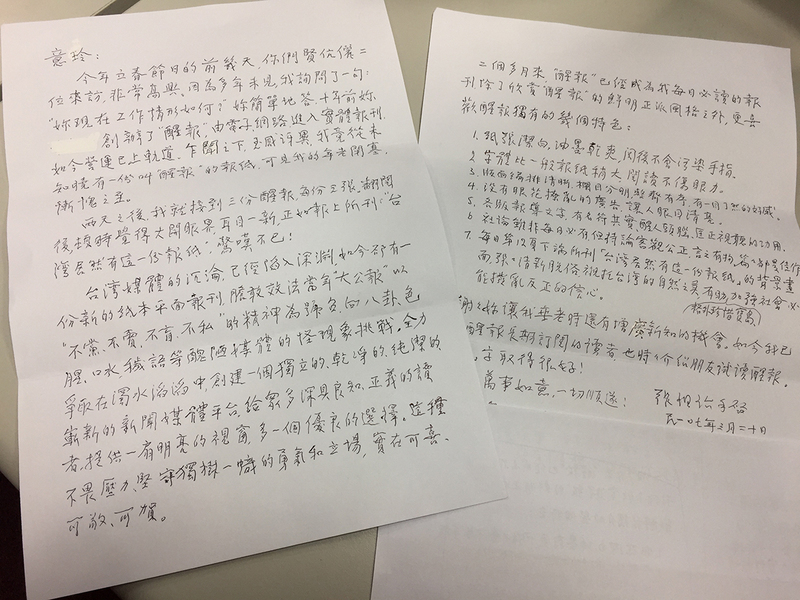 意玲：
今年立春節日的前幾天，你們賢伉儷二
位來訪，非常高興，因為多年未見，我詢問了一句：
"妳現在工作情形如何？"妳簡單地答，十年前妳
創辦了"醒報"，由電子網路進入實體報刊，
如今營運已上軌道，乍聞之下，至感訝異，我竟從未
知曉有一份叫"醒報"的報紙，可見我的年老閉塞，
慚愧之至。
兩天之後，我就接到三份醒報，每份三張，翻閱
後，頓時覺得大開眼界，耳目一新，正如報上所刊："台
灣居然有這一份報紙"，驚嘆不已！
台湾媒體的沉淪，已經陷入深渊，如今卻有一
份新的紙本平面報刊，膽敢效法當年"大公報"以
"不黨、不賣、不盲、不私"的精神為號角，向八卦、色
腥、口水、穢語等醜陋媒體的怪現象挑戰。全力
爭取在濁水滔滔中，創建一個獨立的、乾淨的、純潔的
嶄新的新聞媒體平台，給眾多深具良知、正義的讀
者，提供一扇明亮的視窗，多一個優良的選擇。這種
不畏壓力、堅守獨樹一幟的勇氣和立場，實在可喜、
可敬、可賀。
二個多月來，"醒報"已經成為我每日必讀的報
刊，除了欣賞"醒報"的鮮明正派風格之外，更喜
歡醒報獨有的幾個特色：
1. 紙張潔白，油墨乾爽，閱後不會污染手指。
2. 字體比一般報紙稍大，閱讀不傷眼力。
3. 版面編排清晰，欄目分明，整齊有序，有一目了然的好感。
4. 沒有眼花撩亂的廣告，讓人眼目清亮。
5. 各版報導文字，有名符其實，醒人頭腦，匡正視聽的功用。
6. 社論雖非每日必有，但持論客觀公正，言之有物，篇篇都是佳作
7. 每日單頁頁下端所刊"台灣居然有這一份報紙"的背景畫
面，張張清新脫俗，視托台灣的自然之美，有助加強社會必
能撥亂反正的信心。
和珍惜寶島
謝謝妳讓我垂老時還有增廣新知的機會。如今我已
醒報長期訂閱的讀者，也將介紹朋友試讀醒報。
字取得很好！
萬事如意，一切順遂！
張手啓
民一〇七年三月二十日